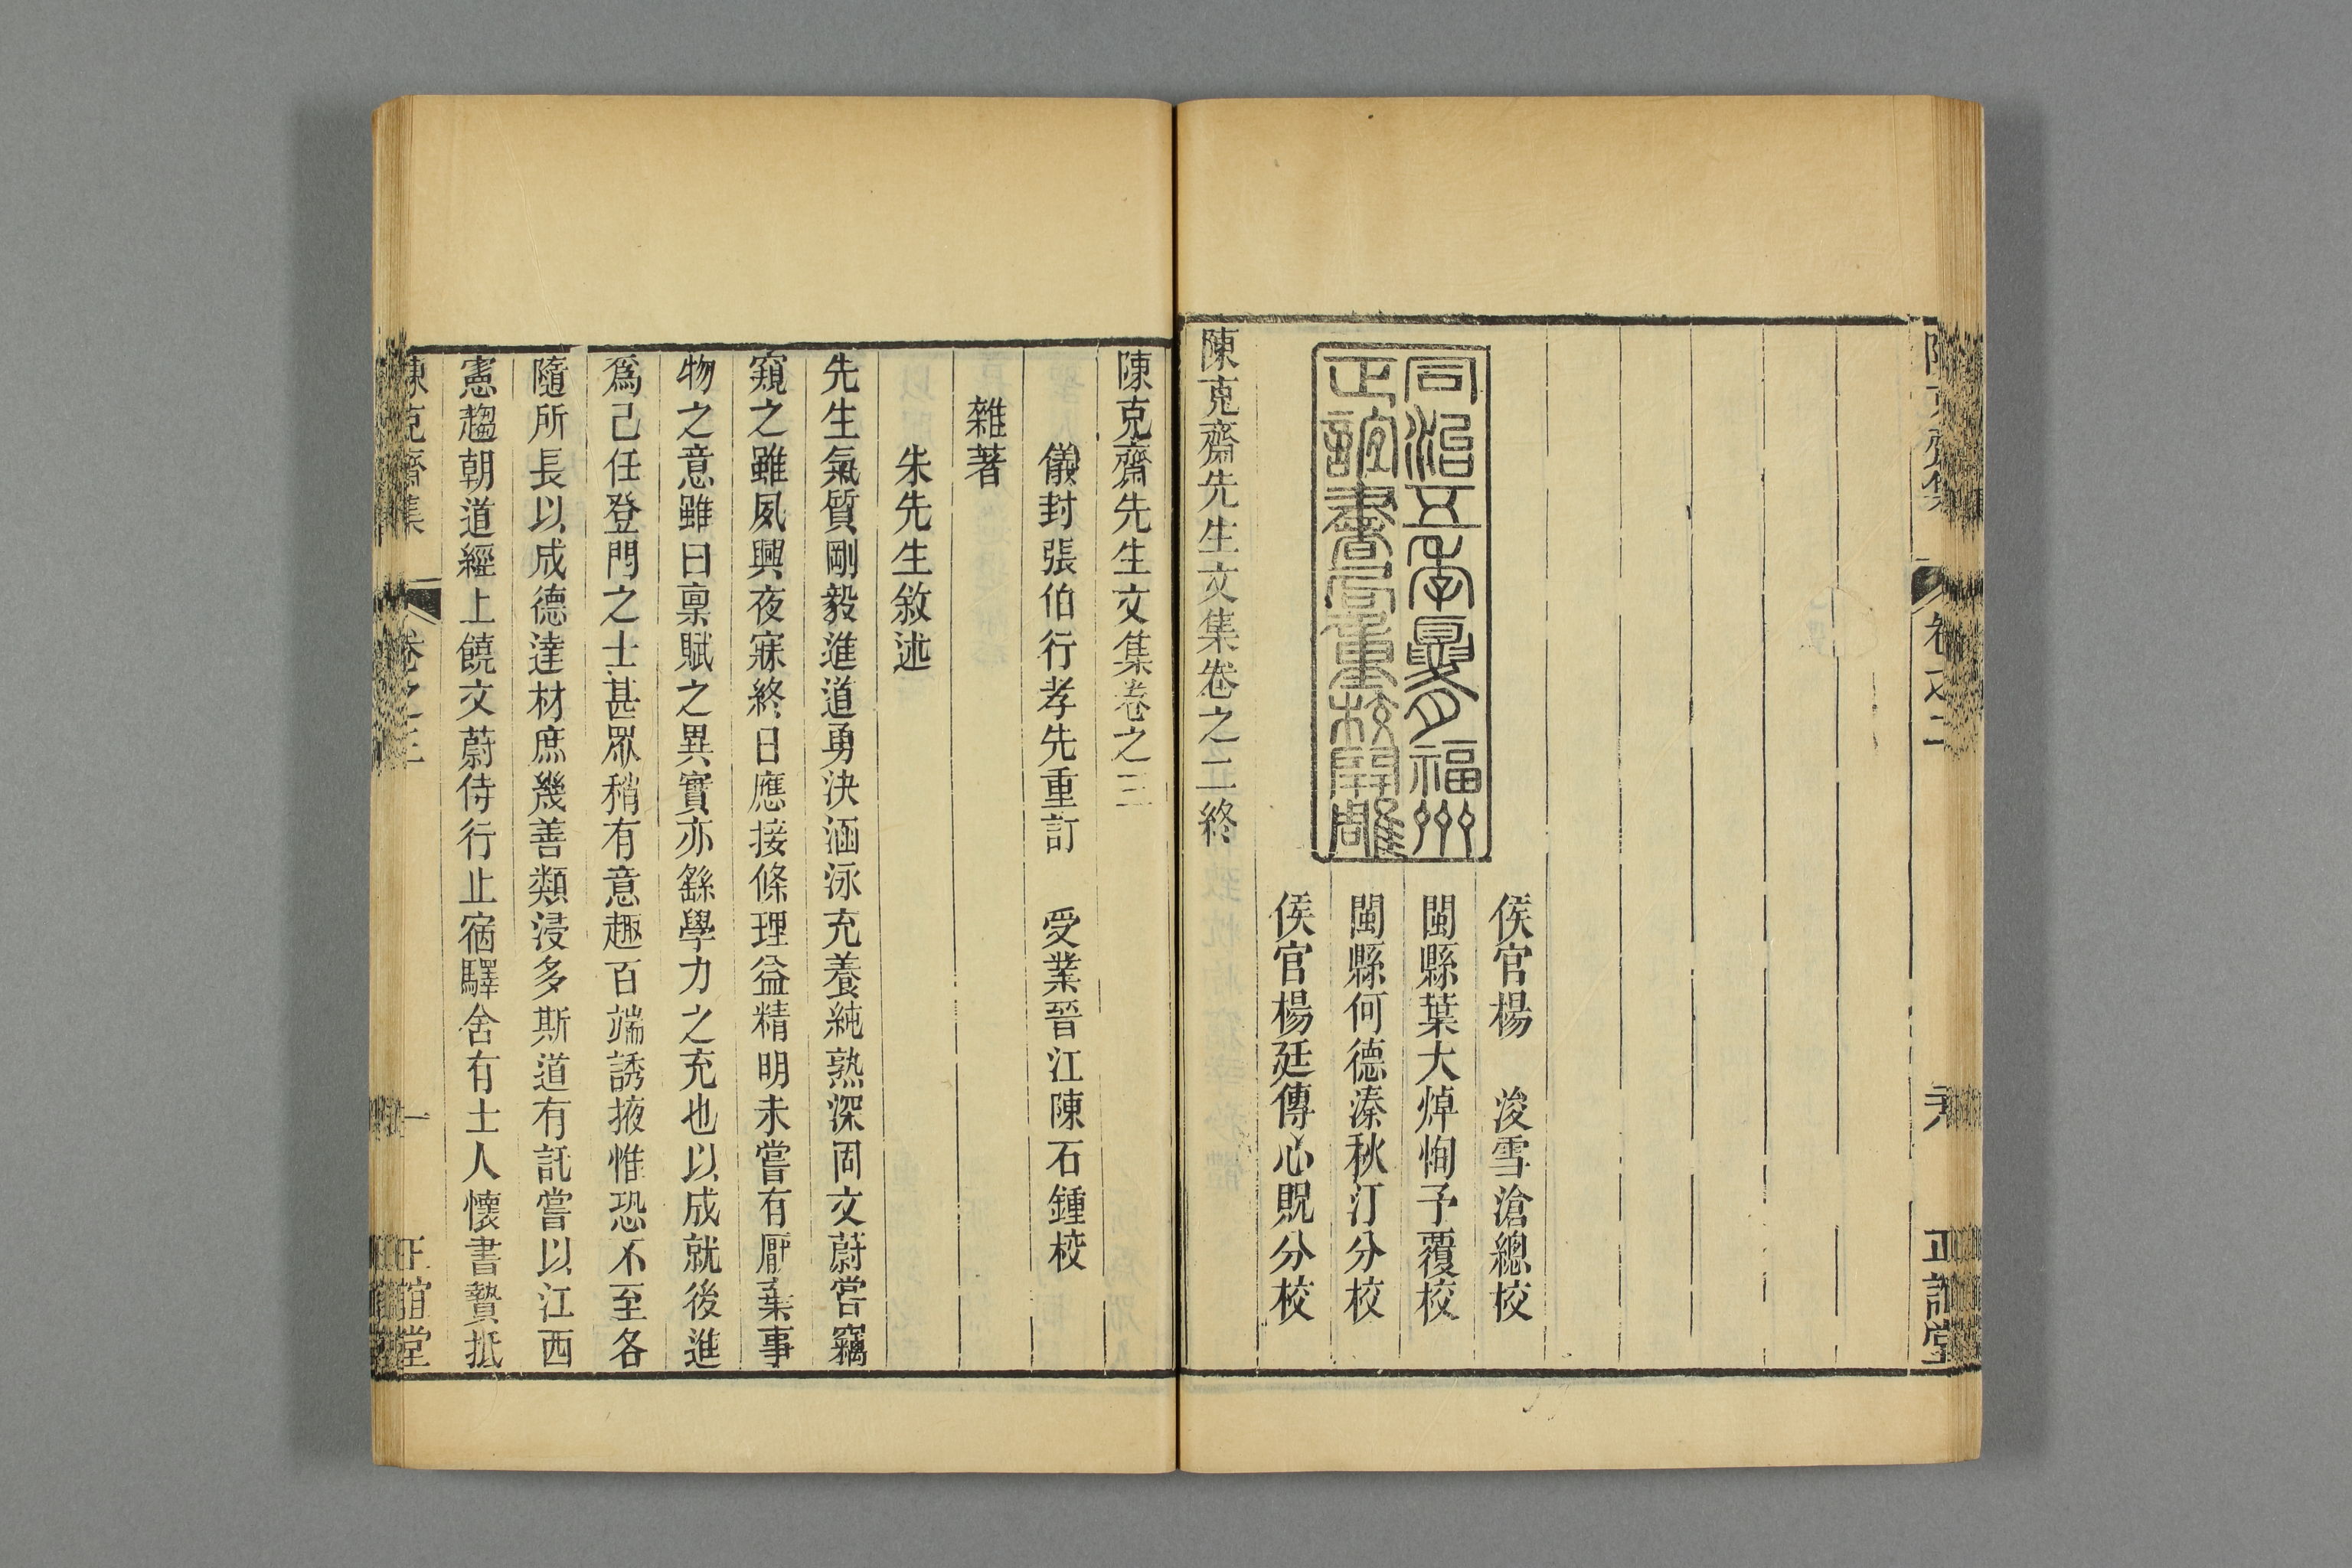 陳克齋集 卷之二 正誼堂
侯官楊 浚雪滄總校
閩縣葉大焯恂予覆校
閩縣何德溱秋汀分校
侯官楊廷傳心貺分校
同治五年夏月福州
正誼書局重校開雕
陳克齋先生文集卷之二終
陳克齋先生文集卷之三
儀封張伯行孝先重訂 受業晉江陳石鍾校
雜著
朱先生敘述
先生氣質剛毅進道勇決涵泳充養純熟深固文蔚嘗竊
窺之雖夙興夜寐終日應接條理益精明未嘗有厭棄事
物之意雖曰稟賦之異實亦繇學力之充也以成就後進
爲己任登門之士甚眾稍有意趣百端誘掖惟恐不至各
隨所長以成德達材庶幾善類浸多斯道有託嘗以江西
憲趨朝道經上饒文蔚侍行止宿驛舍有士人懷書贄抵
陳克齋集 卷之三 一 正誼堂